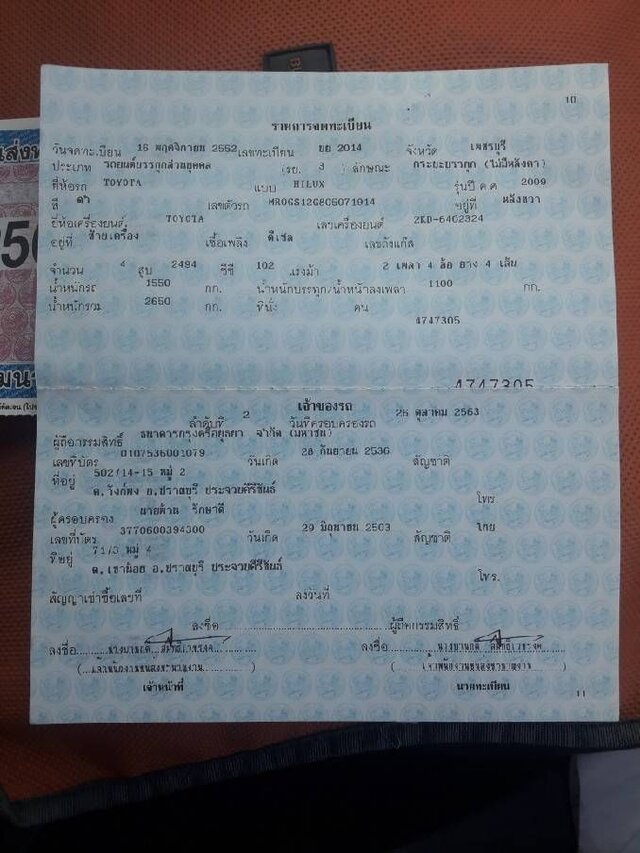 10
รายการจดทะเบียน
วันจดทะเบียน 16 พฤศจิกายน 2552 เลขทะเบียน บย 2014 จังหวัด เพชรบุรี
ประเภท รถยนต์บรรทุกส่วนบุคคล (รย. 3 ) ลักษณะ กระบะบรรทุก (ไม่มีหลังคา)
ยี่ห้อรถ TOYOTA แบบ HILUX รุ่นปี ค.ศ 2009
สี เลขตัวรถ MR0GS12G8C5071914 อยู่ที่ หลังขวา
ยี่ห้อเครื่องยนต์ TOYOTA เลขเครื่องยนต์ 2KD-6462324
อยู่ที่ ซ้ายเครื่อง เชื้อเพลิง ดีเซล เลขถังแก๊ส
จำนวน 4 สูบ 2494 ซีซี 102 แรงม้า 2 เพลา 4 ล้อ ยาง 4 เส้น
น้ำหนักรถ 1550 กก. น้ำหนักบรรทุก/น้ำหนักลงเพลา 1100 กก.
น้ำหนักรวม 2650 กก. ที่นั่ง คน
4747305
4747305
เจ้าของรถ
ลำดับที่ 2 วันที่ครอบครองรถ 26 ตุลาคม 2563
ผู้ถือกรรมสิทธิ์ ธนาคารกรุงศรีอยุธยา จำกัด (มหาชน)
เลขที่บัตร 0107536001079 วันเกิด 28 กันยายน 2536 สัญชาติ
ที่อยู่ 502/14-15 หมู่ 2
ต.วังก์พง อ.ปราณบุรี ประจวบคีรีขันธ์ โทร.
ผู้ครอบครอง รักษาดี
เลขที่บัตร 3770600394300 วันเกิด 29 มิถุนายน 2503 สัญชาติ ไทย
ที่อยู่ 71/5 หมู่ 4
ต.เขาน้อย อ.ปราณบุรี ประจวบคีรีขันธ์ โทร.
สัญญาเช่าซื้อเลขที่ ลงวันที่
ลงชื่อ ผู้ถือกรรมสิทธิ์
ลงชื่อ ลงชื่อ
(เจ้าพนักงานขนส่งชำนาญงาน) (เจ้าพนักงานขนส่งชำนาญงาน)
เจ้าหน้าที่ นายทะเบียน
11